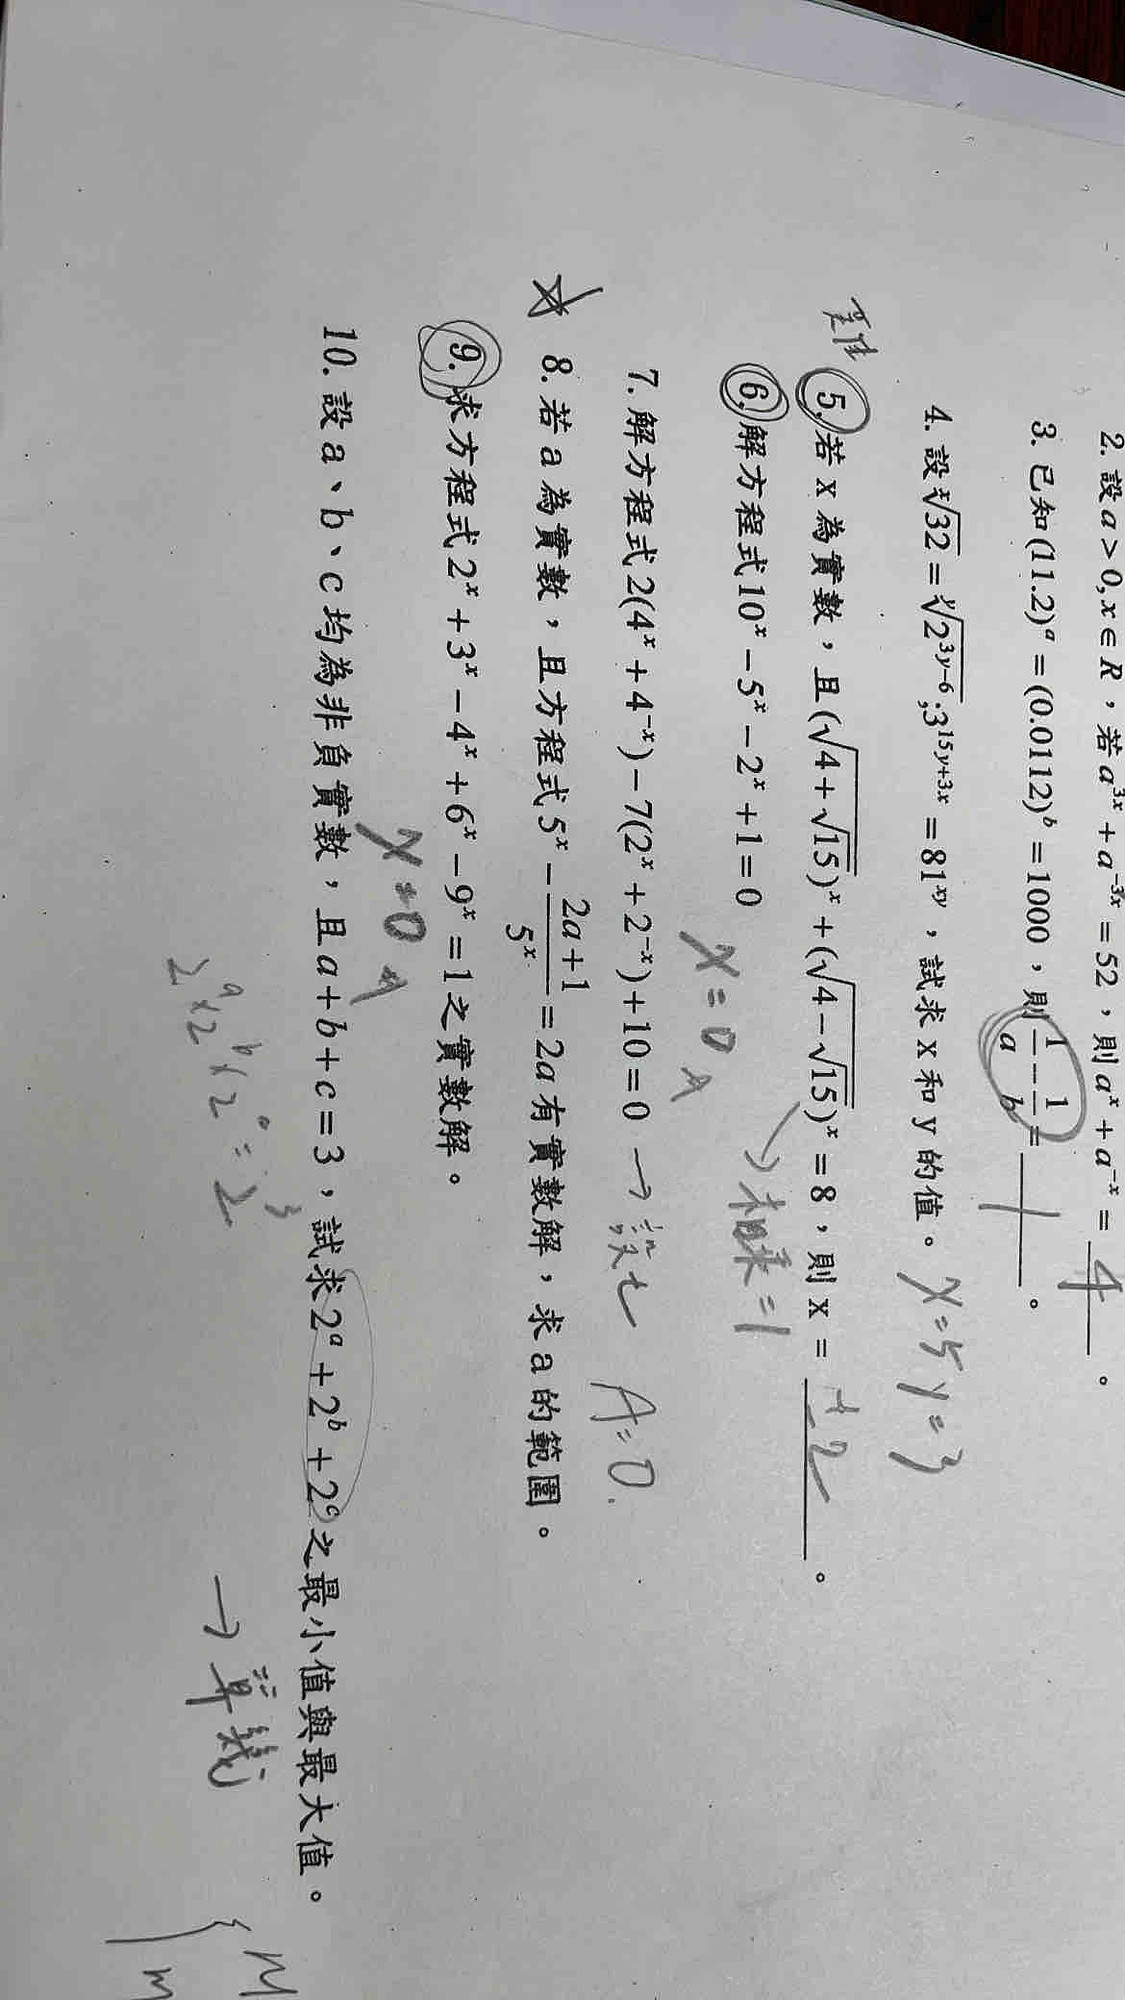 2. 設a>0,x∈R，若a^{3x}+a^{-3x}=52，則a^x+a^{-x}= 4 。
3. 已知(11.2)^a=(0.0112)^b=1000，則1/a-1/b= 1 。
4. 設\sqrt[x]{32}=\sqrt[y]{2^{3y-6}};3^{15y+3x}=81^{xy}，試求x和y的值。 x=5 y=3
5. 若x為實數，且(\sqrt{4+\sqrt{15}})^x+(\sqrt{4-\sqrt{15}})^x=8，則x= ±2 。
→相乘=1
6. 解方程式10^x-5^x-2^x+1=0
x=0
7. 解方程式2(4^x+4^{-x})-7(2^x+2^{-x})+10=0 →設t A=0
☆ 8. 若a為實數，且方程式5^x-\frac{2a+1}{5^x}=2a有實數解，求a的範圍。
9. 求方程式2^x+3^x-4^x+6^x-9^x=1之實數解。
x=0
10. 設a、b、c均為非負實數，且a+b+c=3，試求2^a+2^b+2^c之最小值與最大值。
2^a×2^b×2^c=2^3
→算幾
M
m